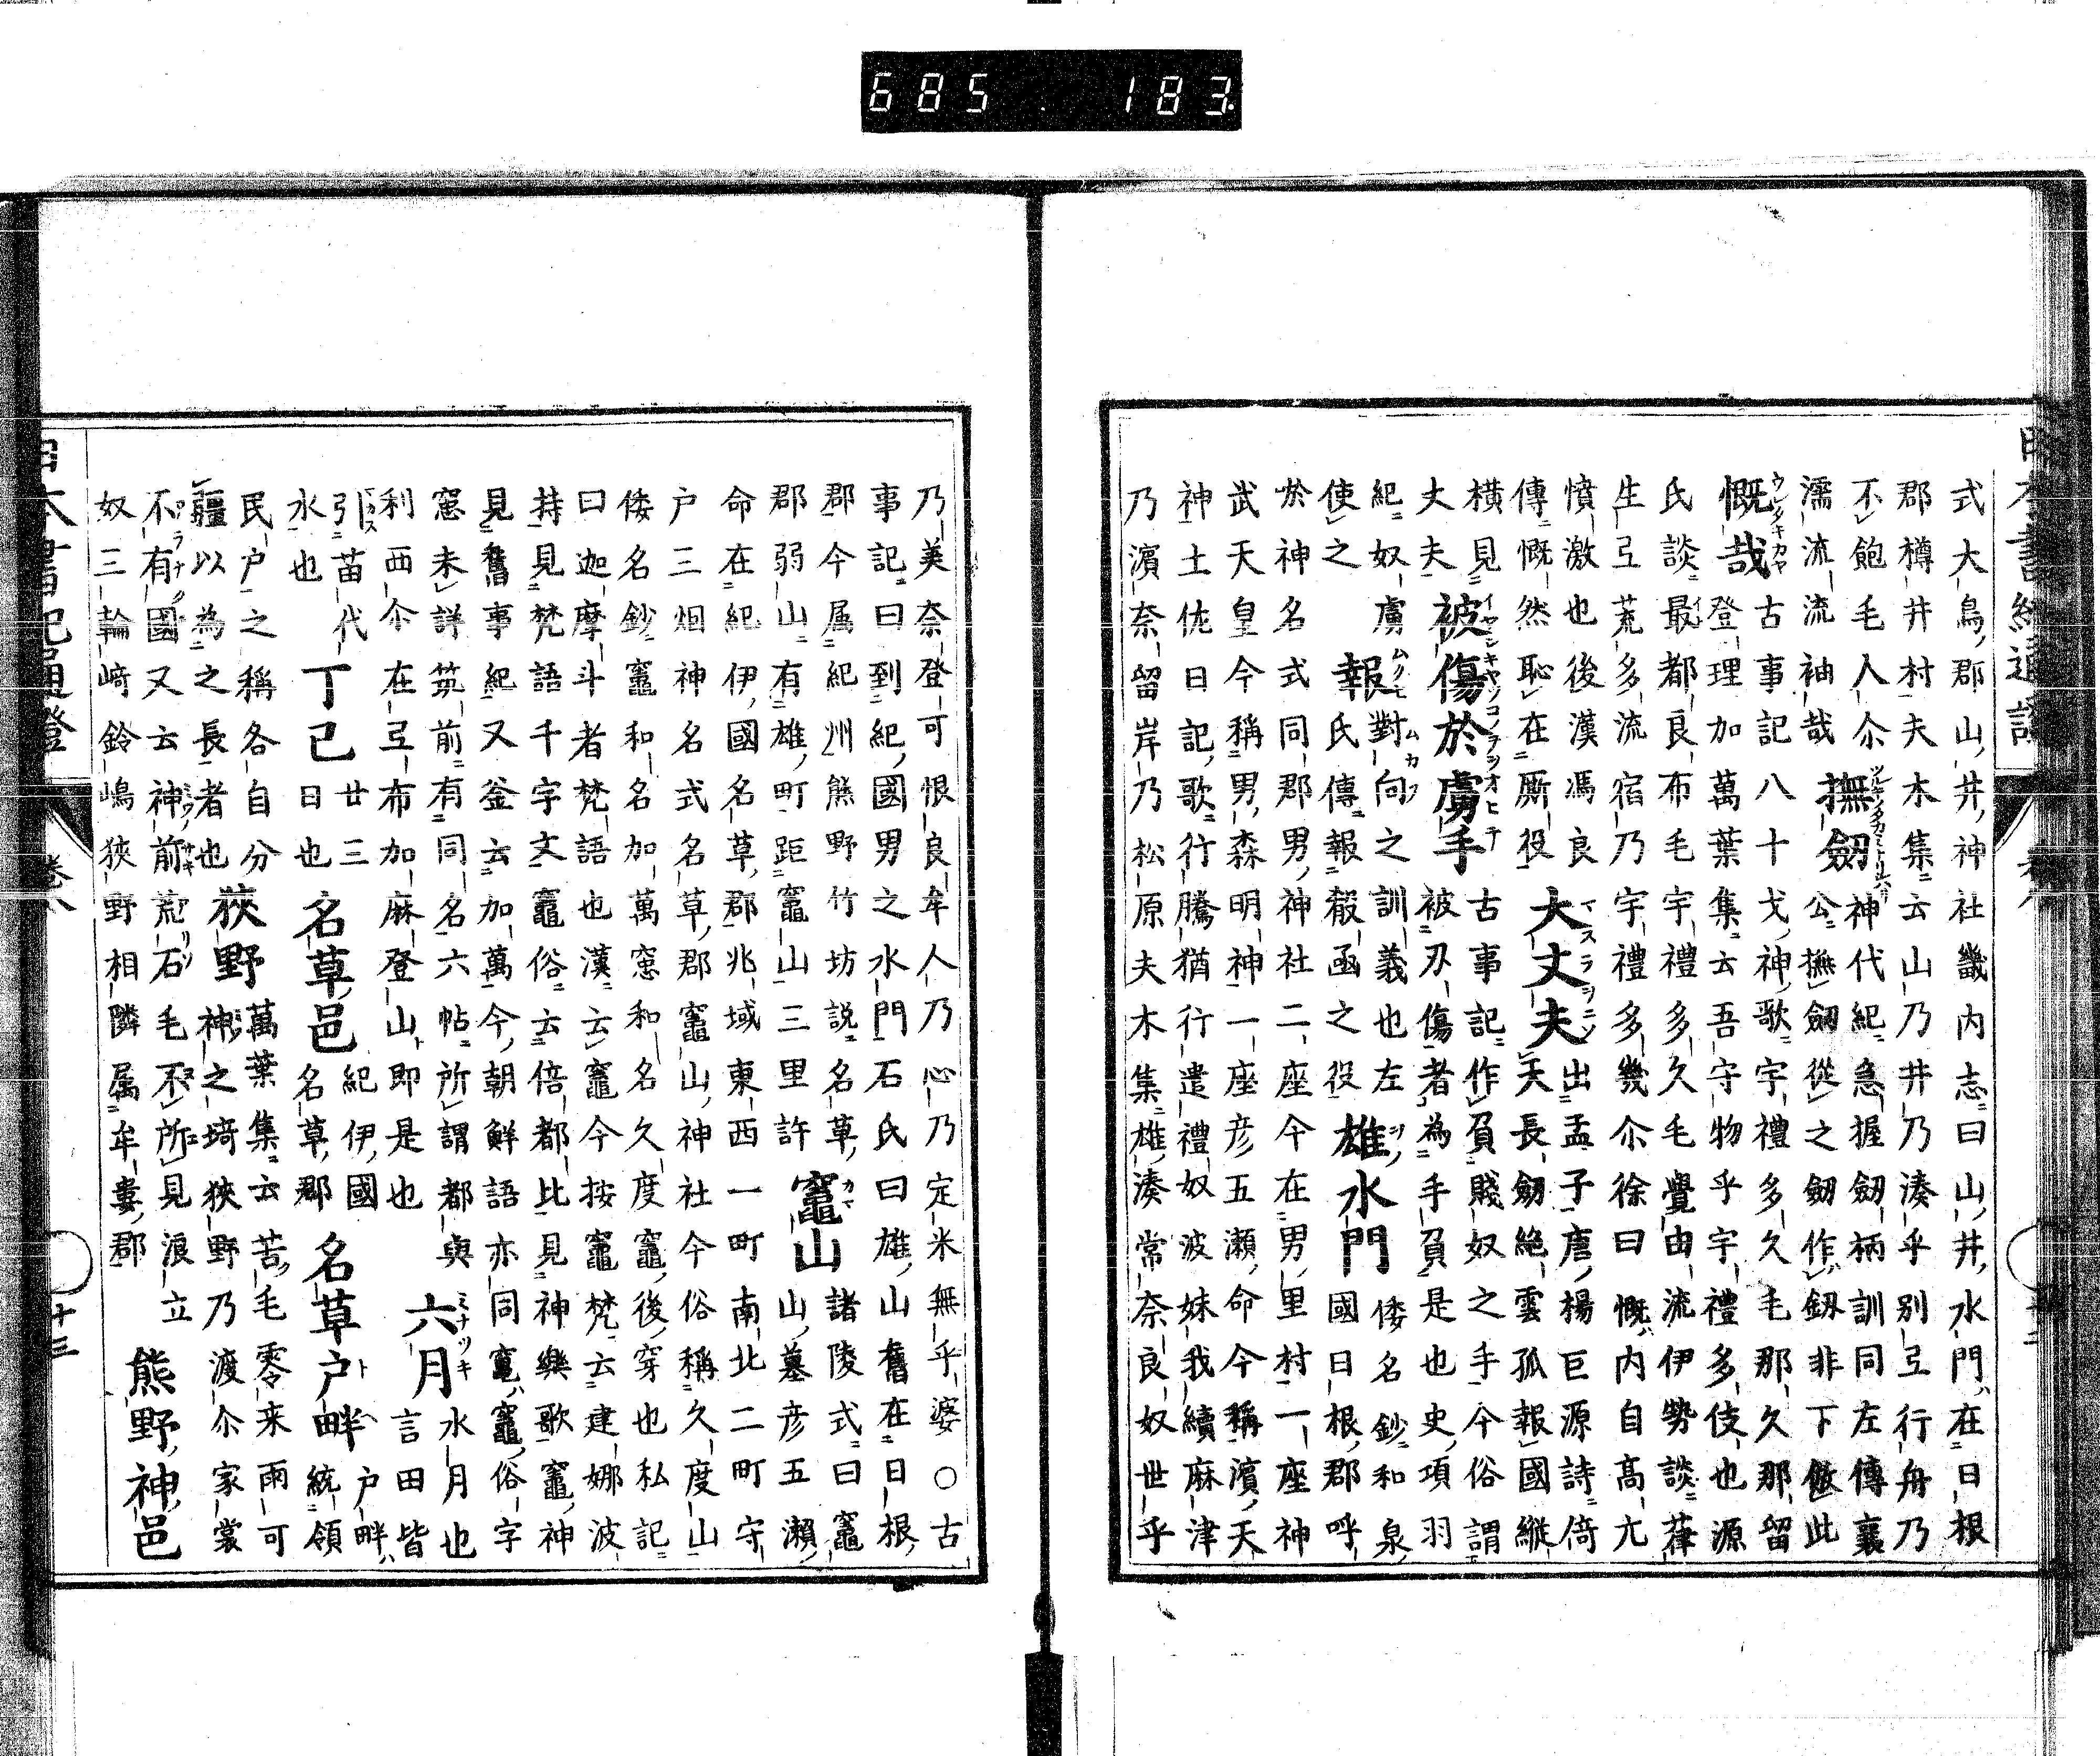 685 183
式大鳥郡山井神社畿内志曰山井水門在日根
郡樽井村夫木集云山乃井乃湊乎別弖行舟乃
不飽毛人尒 撫劒 神代紀急握劒柄訓同左傳襄
濡流流袖哉 公撫劒從之劒作釼非下倣此
慨哉 古事記八十戈神歌宇禮多久毛那久那留
登理加萬葉集云吾守物乎宇禮多伎也源
氏談最都良布毛宇禮多久毛覺由流伊勢談葎
生弖荒多流宿乃宇禮多幾尒徐曰慨内自高亢
憤激也後漢馮良 大丈夫 出孟子唐楊巨源詩倚
傳慨然恥在厮役 天長劒絶雲孤報國縱
横見 被傷於虜手 古事記作負賤奴之手今俗謂
丈夫 被刃傷者為手負是也史項羽
紀奴虜 報 對向之訓義也左 雄水門 倭名鈔和泉
使之 氏傳報殽函之役 國日根郡呼
於神名式同郡男神社二座今在男里村一座神
武天皇今稱男森明神一座彦五瀬命今稱濱天
神土佐日記歌行騰猶行遣禮奴波妹我續麻津
乃濱奈留岸乃松原夫木集雄湊常奈良奴世乎
乃美奈登可恨良牟人乃心乃定米無乎婆○古
事記曰到紀國男之水門石氏曰雄山舊在日根
郡今属紀州熊野竹坊説名草 竈山 諸陵式曰竈
郡弱山有雄町距竈山三里許 山墓彦五瀬
命在紀伊國名草郡兆域東西一町南北二町守
戸三烟神名式名草郡竈山神社今俗稱久度山
倭名鈔竈和名加萬窓和名久度竈後穿也私記
曰迦摩斗者梵語也漢云竈今按竈梵云建娜波
持見梵語千字文竈俗云倍都比見神樂歌竈神
見舊事紀又釜云加萬今朝鮮語亦同竃竈俗字
窓未詳筑前有同名六帖所謂都與 六月 水月也
利西尒在弖布加麻登山即是也 言田皆
引苗代 丁已 廿三 名草邑 紀伊國 名草戸畔 戸畔
水也 日也 名草郡 統領
民戸之稱各自分 狹野 萬葉集云苦毛零来雨可
疆以為之長者也 神之埼狹野乃渡尒家裳
不有國又云神前荒石毛不所見浪立 熊野神邑
奴三輪﨑鈴嶋狹野相隣属牟婁郡
日本書紀通證 卷八 十三